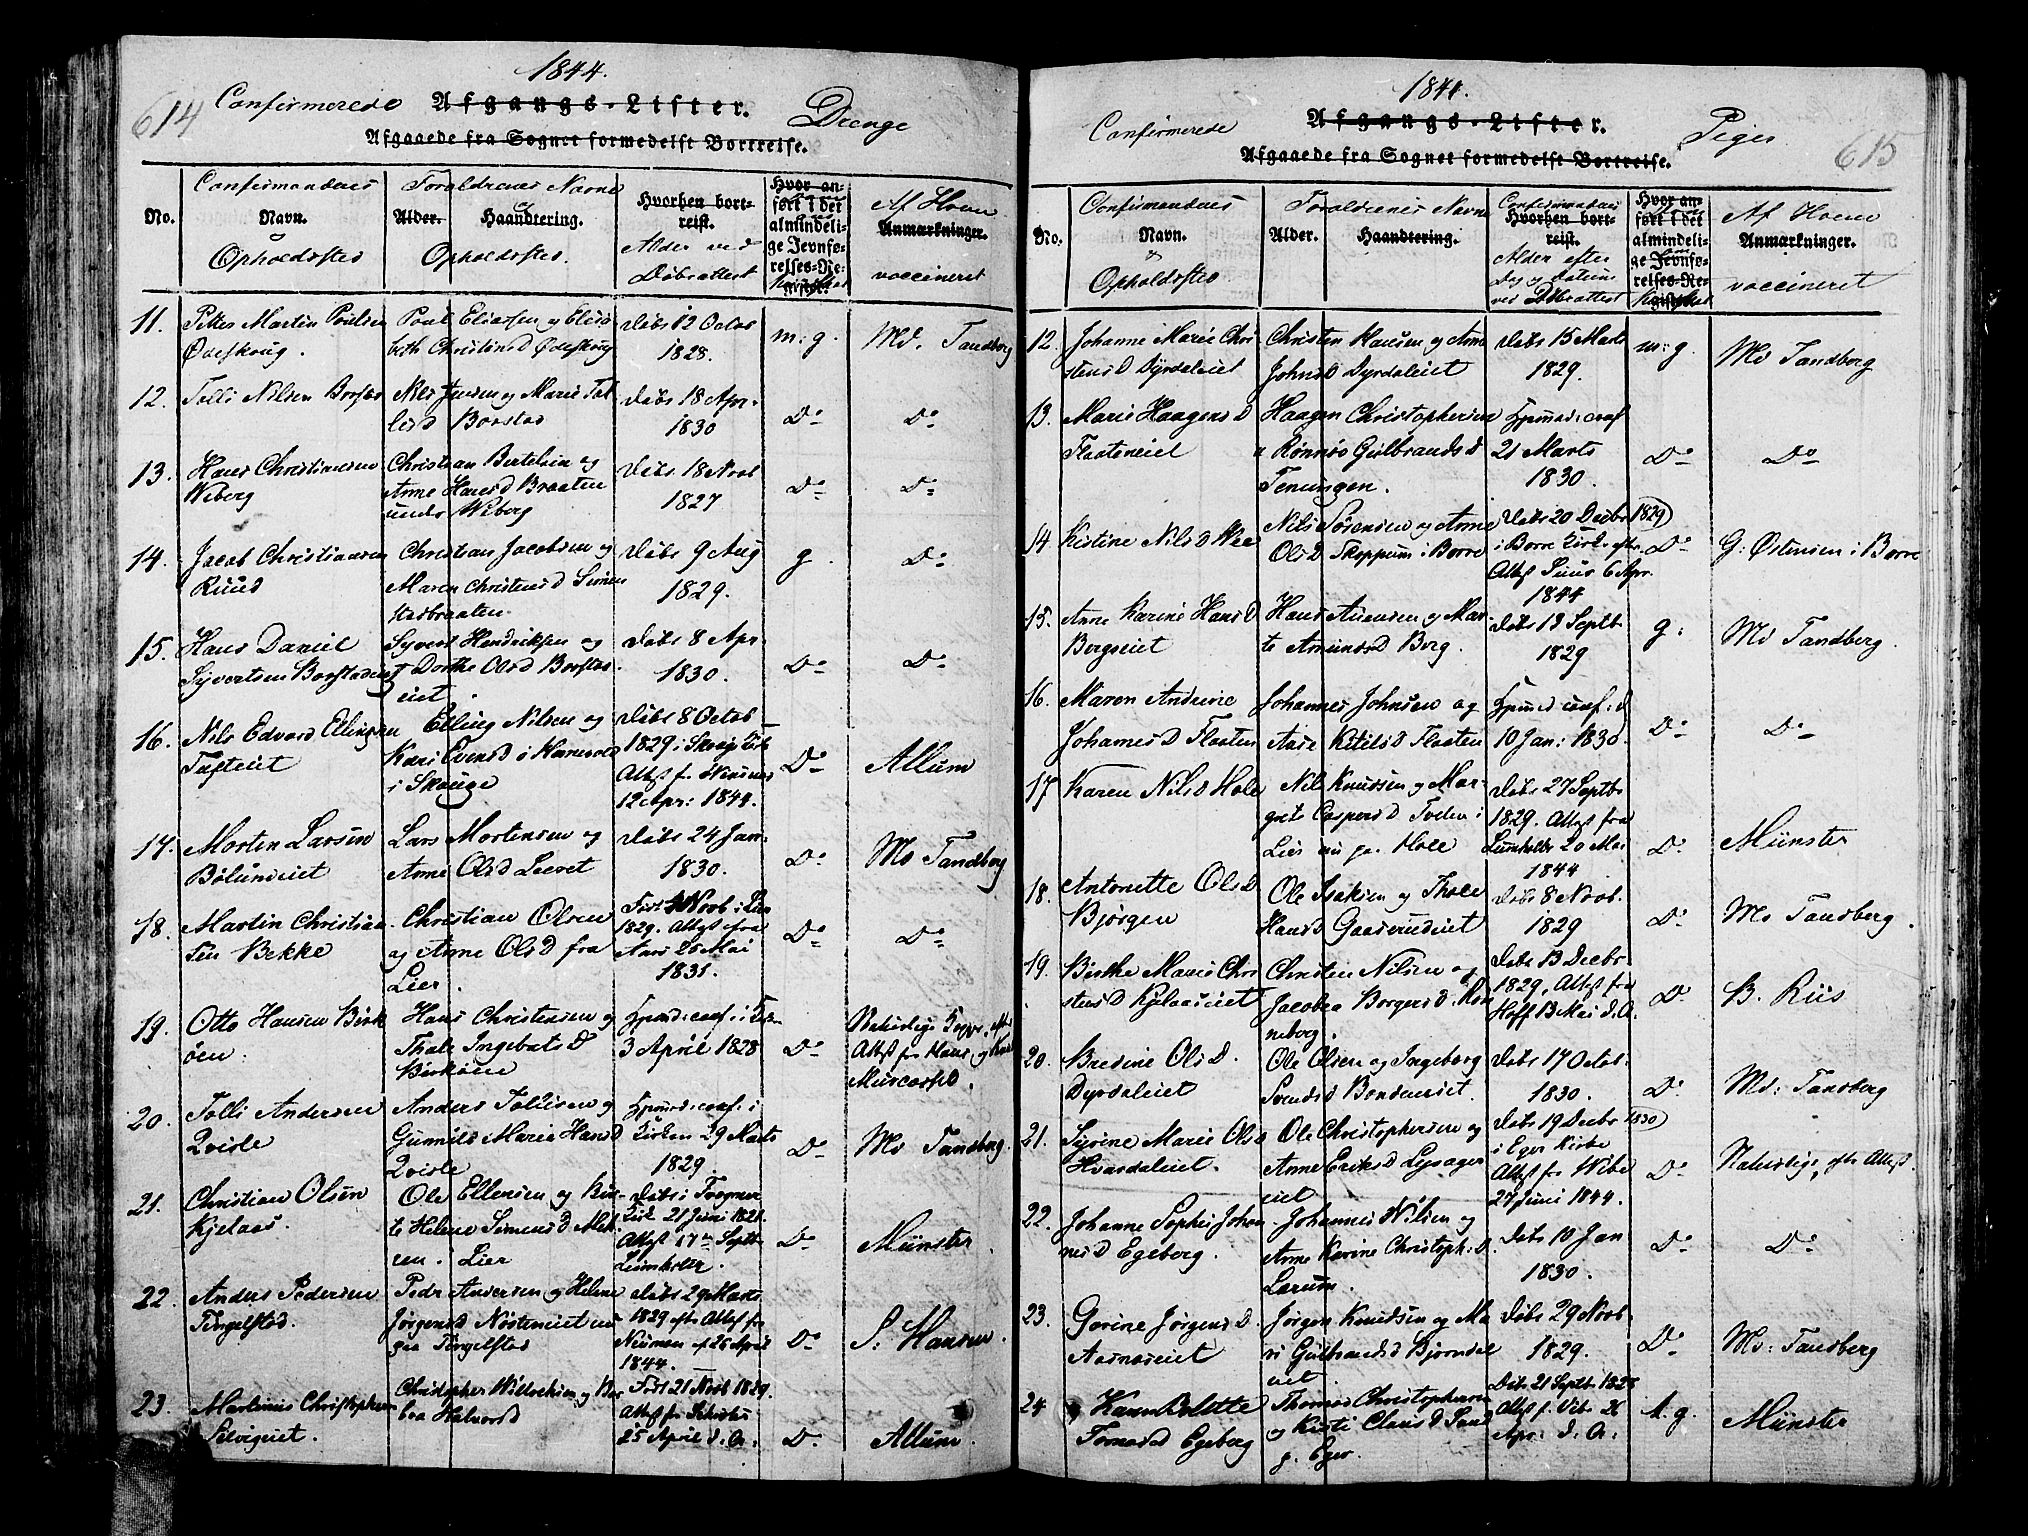 614
1844.
Confirmerede Afgangs-Lister. Drenge
Afgaaede fra Sognet formedelst Bortreise.
No.
Confirmandens
Navn.
Opholdssted
Forældrenes Navne
Alder. Haandtering.
Opholdssted.
Hvorhen bort-
reist.
Alder ved
Døbeattest
Hvor an-
ført i det
almindeli-
ge Jevnfø-
relses-Re-
Af Hvem
Anmærkninger.
vaccineret
11.
Ødeskoug.
Poul Eliasen og Elisa
beth Christinsd Ødeskoug
Døbt 12 Octob
1828.
m: g.
Md. Tandberg
12.
Tolli Nilsen Borstad
Nils Jensen og Marie Tol
lisd Borstad
Døbt 18 Apr.
1830
Do
Do
13.
Hans Christiansen
Wiberg
Christian Bertelsen og
Anne Hansd Braaten
under Wiberg
Døbt 18 Novb
1827
Do
Do
14.
Jacob Christiansen
Ruud
Christian Jacobsen og
Maren Christensd Simen
stadbraaten.
Døbt 9 Aug
1829.
g.
Do
15.
Hans Daniel
Syvertsen Borstadeiet
Syvert Hendriksen og
Dorthe Olsd Borstad
eiet.
Døbt 8 Apr.
1830.
Do
Do
16.
Nils Edvard Ellingsen
Tufteiet
Elling Nilsen og
Kari Evensd i Hanevold
i Skouge
Døbt 8 Octob
1829 i Skoug
12 Apr: 1844.
Do
Allum
17.
Morten Larsen
Bølumeiet
Lars Mortensen og
Anne Olsd Leeret
Døbt 24 Jan
1830.
Do
Md Tandberg
18.
Martin Christian
sen Bekke
Christian Olsen
og Anne Olsd fra
Lier.
1829. Attest fra
Do
Do
19.
Otto Hansen Birk
øen.
Hans Christensen og
Thale Ingebretsd
Birkøen
3 April 1828
Do
Naturlige
20.
Tolli Andersen
Qvisle
Anders Tollisen og
Gunnild Marie Hansd
Qvisle
Hjemmed: conf: i
Kirken 29 Marts
1829.
Do
Md Tandberg.
21.
Christian Olsen
Kjelaas.
Ole Ellensen og
te Helene Simensd
Lier
Døbt i Frogner
Kirk 21 Juni
Attest 17de Septb
Lumholtz.
Do
Münster
22.
Anders Pedersen
Tingelstad.
Peder Andersen og Helene
Jørgensd
paa Tingelstad
Døbt 29 Marts
1829 eftr Attest fr
Neuman af 26 April
1844.
Do
S: Hansen.
23.
Martinus Christophersen
Selvigeiet.
bea Halvorsd
Født 21 Novb 1829.
25 April d. A:
Do
Allum
615
1844.
Confirmerede Afgangs-Lister. Piger
Afgaaede fra Sognet formedelst Bortreise.
No.
Confirmandens
Navn.
Opholdssted
Forældrenes Navne
Alder. Haandtering.
Confirmandens
Hvorhen bort-
reist.
Alder efter
Dag og Datum
ved Døbeattest
Hvor an-
ført i det
almindeli-
ge Jevnfø-
relses-Re-
gister.
Af Hvem
Anmærkninger.
vaccineret
12.
Johanne Marie Chri
stensd Dyrdaleiet
Christen Hansen og Anne
Johnsd Dyrdaleiet
Døbt 15 Marts
1829.
m: g.
Md Tandberg
13.
Marie Haagensd
Flaateneiet
Haagen Christophersen
Gulbrandsd
Hjemmed: conf
21 Marts
1830.
Do
Do
14
Kistine Nilsd
Nils Sørensen og Anne
Olsd Skoppum i Borre
Døbt 20 Decbr 1829
i Borre Kirke eftr
Attest 6 Apr.
1844
Do
G: Østensen i Borre
15.
Anne Karine Hansd
Bergseiet
Hans Auensen og Mar-
te Amundsd Berg.
Døbt 13 Septb
1829
g:
Md Tandberg.
16.
Maren Andrine
Johannesd Flaaten
Johannes Johnsen og
Aase Kitilsd Flaaten
Hjemmed conf: d
10 Jan: 1830.
Do
Do
17
Karen Nilsd Hole
Nils Knudsen og Mar-
grete Caspersd Tveten i
Lier nu paa Hole
Døbt 27 Septb
1829. Attest fra
Lumholtz 20 Mai
1844
Do
Münster
18.
Antonette Olsd
Bjørgen
Ole Isaksen og Thale
Hansd Gaasrudeiet
Døbt 8 Novb.
1829
Do
Md Tandberg.
19.
Birthe Marie Chri
stensd Kjelaaseiet
Christen Nilsen og
Jacobea Borgersd. Ron
neberg.
Døbt 13 Decbr.
1829, Attest fra
Hoff 13 Mai d. A.
Do
B. Riis
20.
Bredine Olsd.
Dyrdaleiet
Ole Olsen og Ingeborg
Svendsd Bondeneiet.
Døbt 17 Octob.
1830.
Do
Md: Tandberg
21.
Syrine Marie Olsd
Hvardaleiet.
Ole Christophersen og
Anne Eriksd Lysager
eiet
Døbt 19 Decbr 1830
i Eger Kirke
Attest fr Wibe
27 Juni 1844.
Do
Naturlige, eftr Attest.
22.
Johanne Sophie Johan
nesd Egeberg.
Johannes Nilsen og
Anne Karine Christoph: D.
Larum.
Døbt 10 Jan
1830.
Do
Do
23.
Gorine Jørgensd.
Aasnæseiet
Jørgen Knudsen og Ma
ri Gulbrandsd Bjørndal
eiet.
Døbt 29 Novb
1829.
Do
Md: Tandberg
24
Karen Bolette
Tomasd Egeberg
Thomas Christophersen
og Kisti Clausd Sand
p. Eger.
Døbt 21 Septb 1828
Attest f. Vibe 26
Apr: d. A.
t. g.
Münster